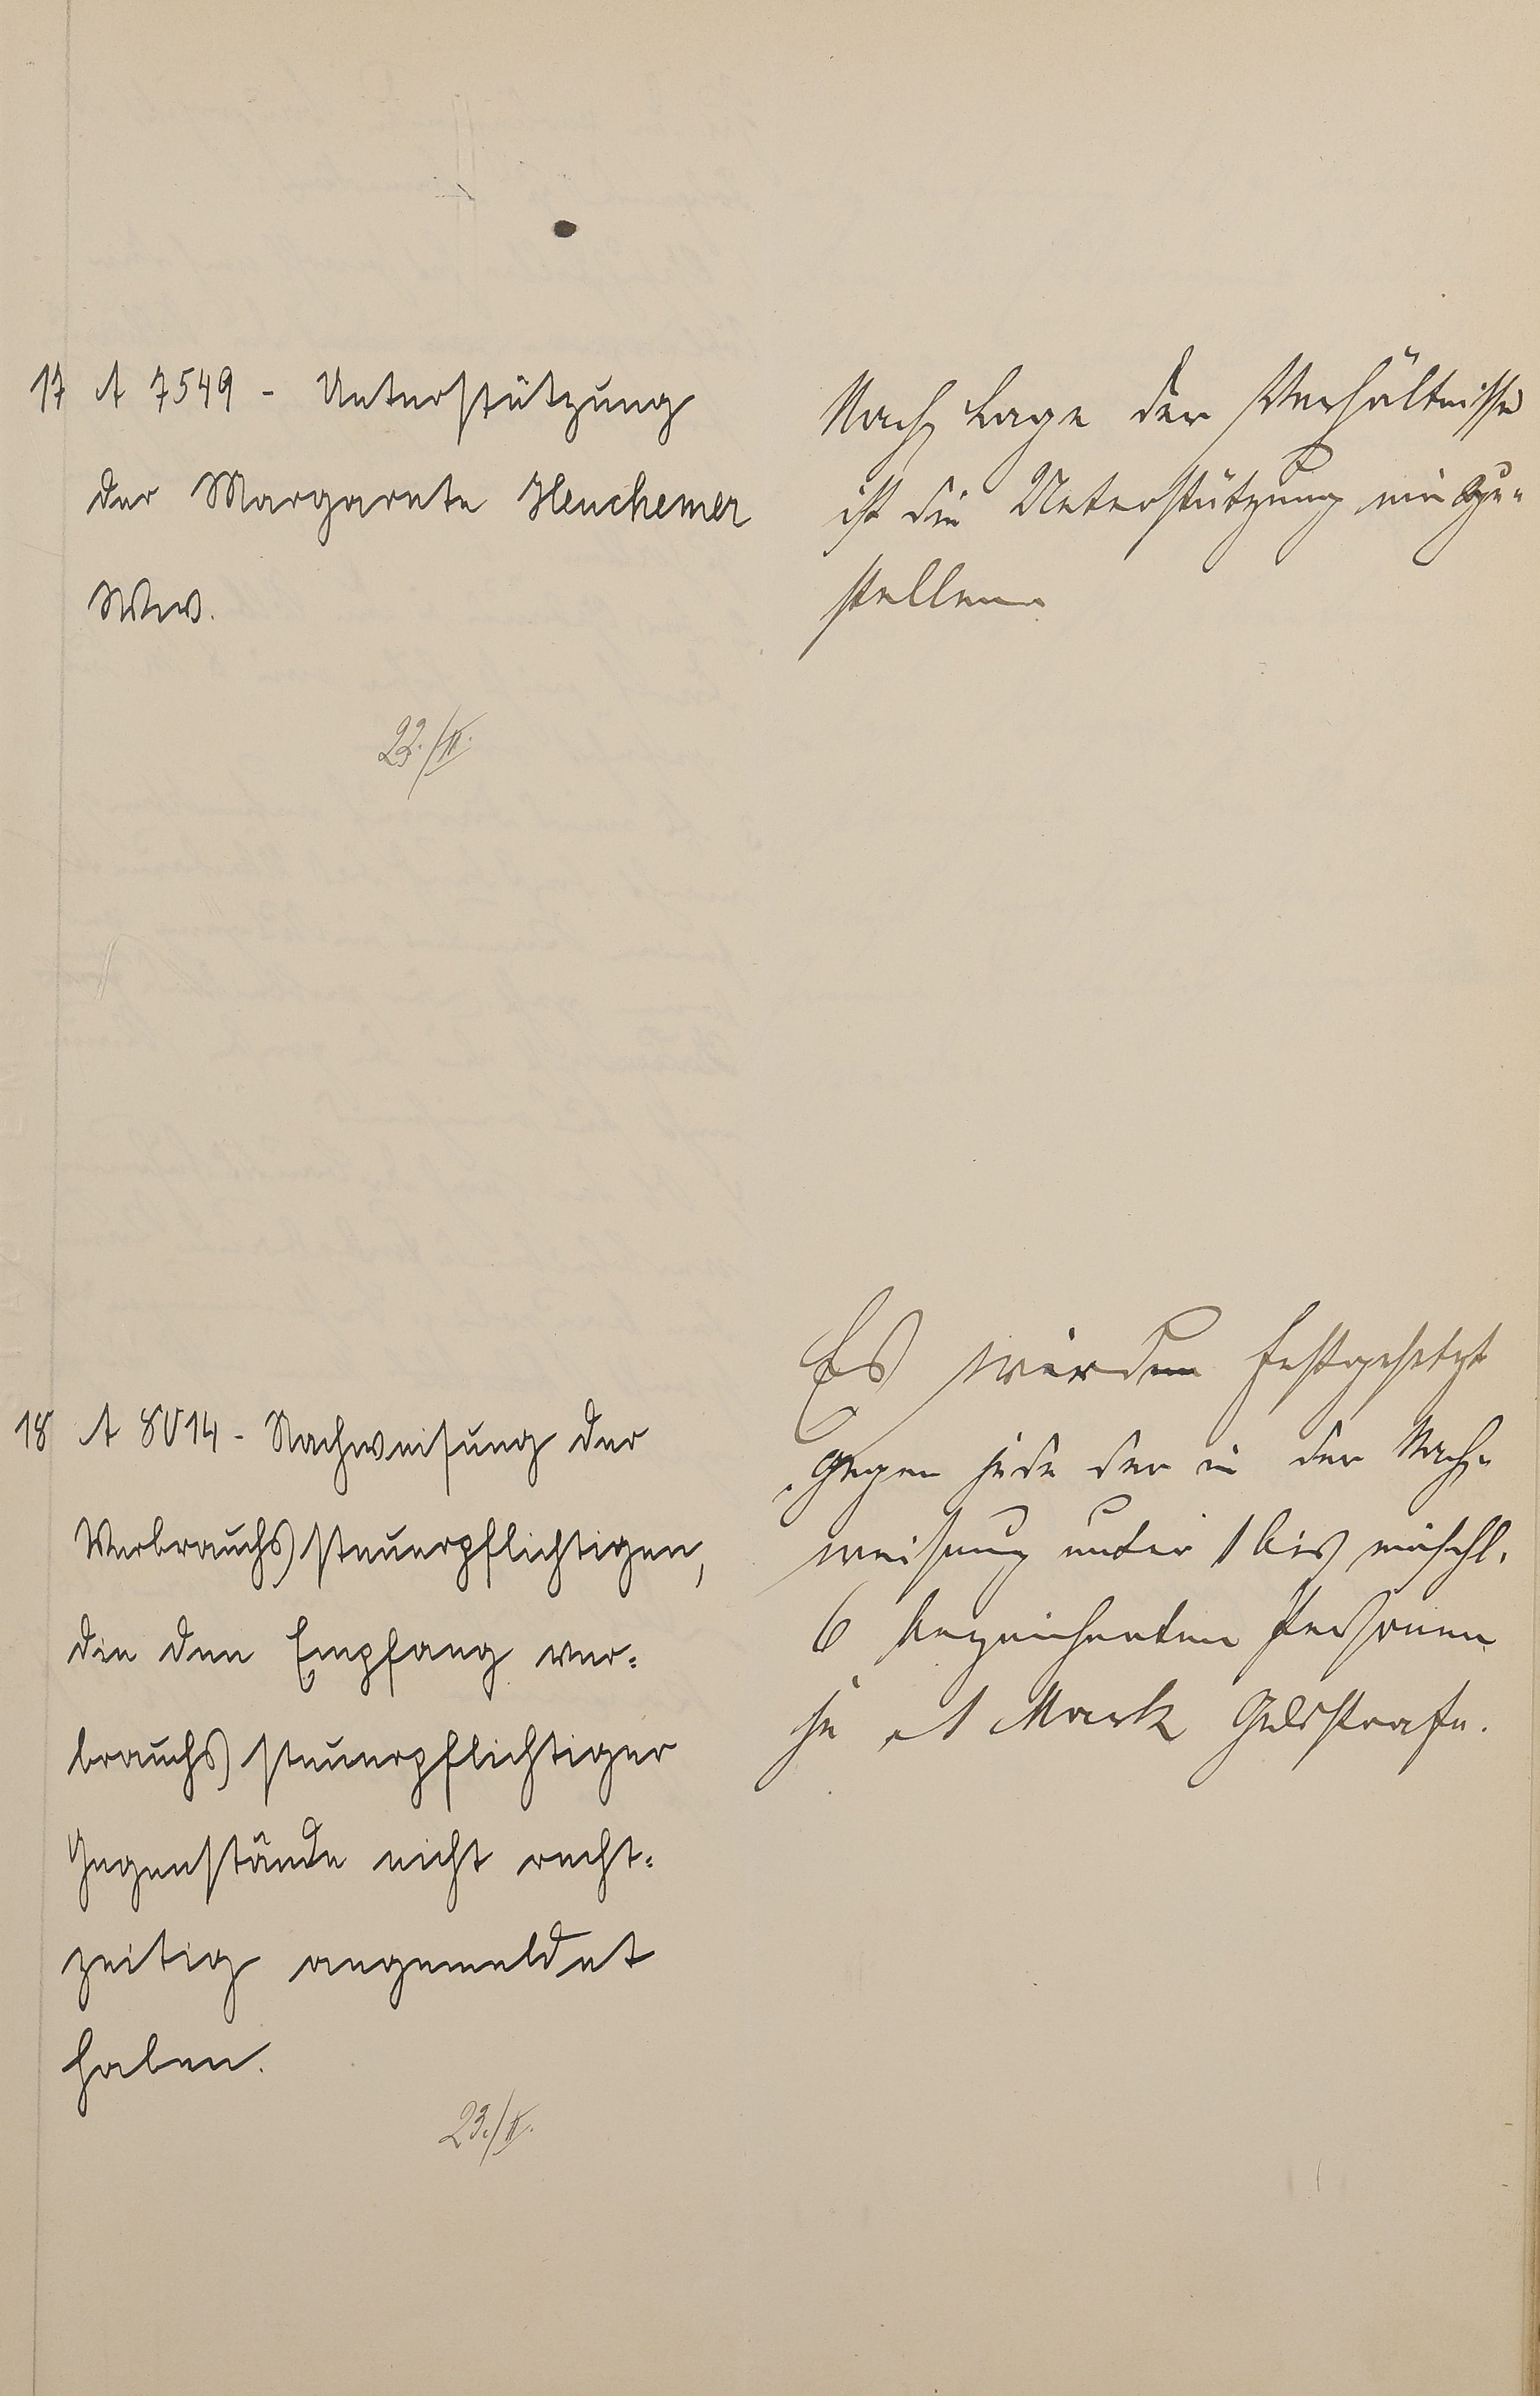 17 A 7549 - Unterstützung
der Margarete Heuchemer
Wwe.
22./II.
Nach Lage der Verhältnisse
ist die Unterstützung einzu-
stellen.
18 A 8014 - Nachweisung der
Verbrauchssteuerpflichtigen,
die den Empfang ver-
brauchssteuerpflichtiger
Gegenstände nicht recht-
zeitig angemeldet
haben.
23./II.
Es werden festgesetzt
gegen jede der in der Nach-
weisung unter 1 bis einschl.
6 bezeichneten Personen
je 1 Mark Geldstrafe.